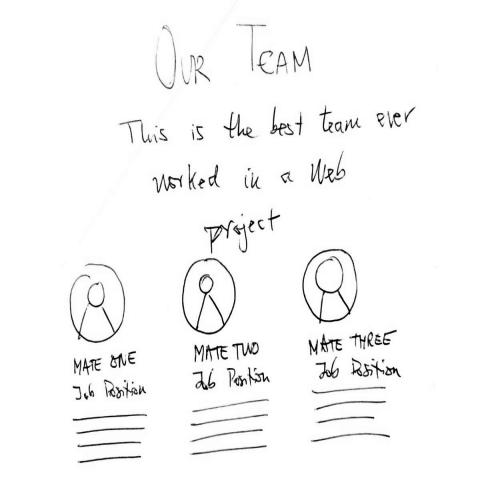 OUR TEAM
This is the best team ever
worked in a Web
project
MATE ONE
Job Position
MATE TWO
Job Position
MATE THREE
Job Position